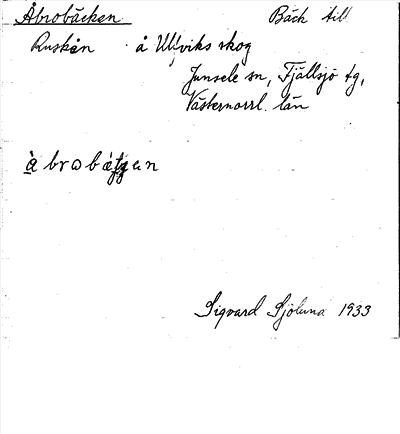 Åbrobäcken Bäck till
Ruskån å Ullviks skog
Junsele sn, Fjällsjö tg,
Västernorrl. län
Sigvard Sjölund 1933